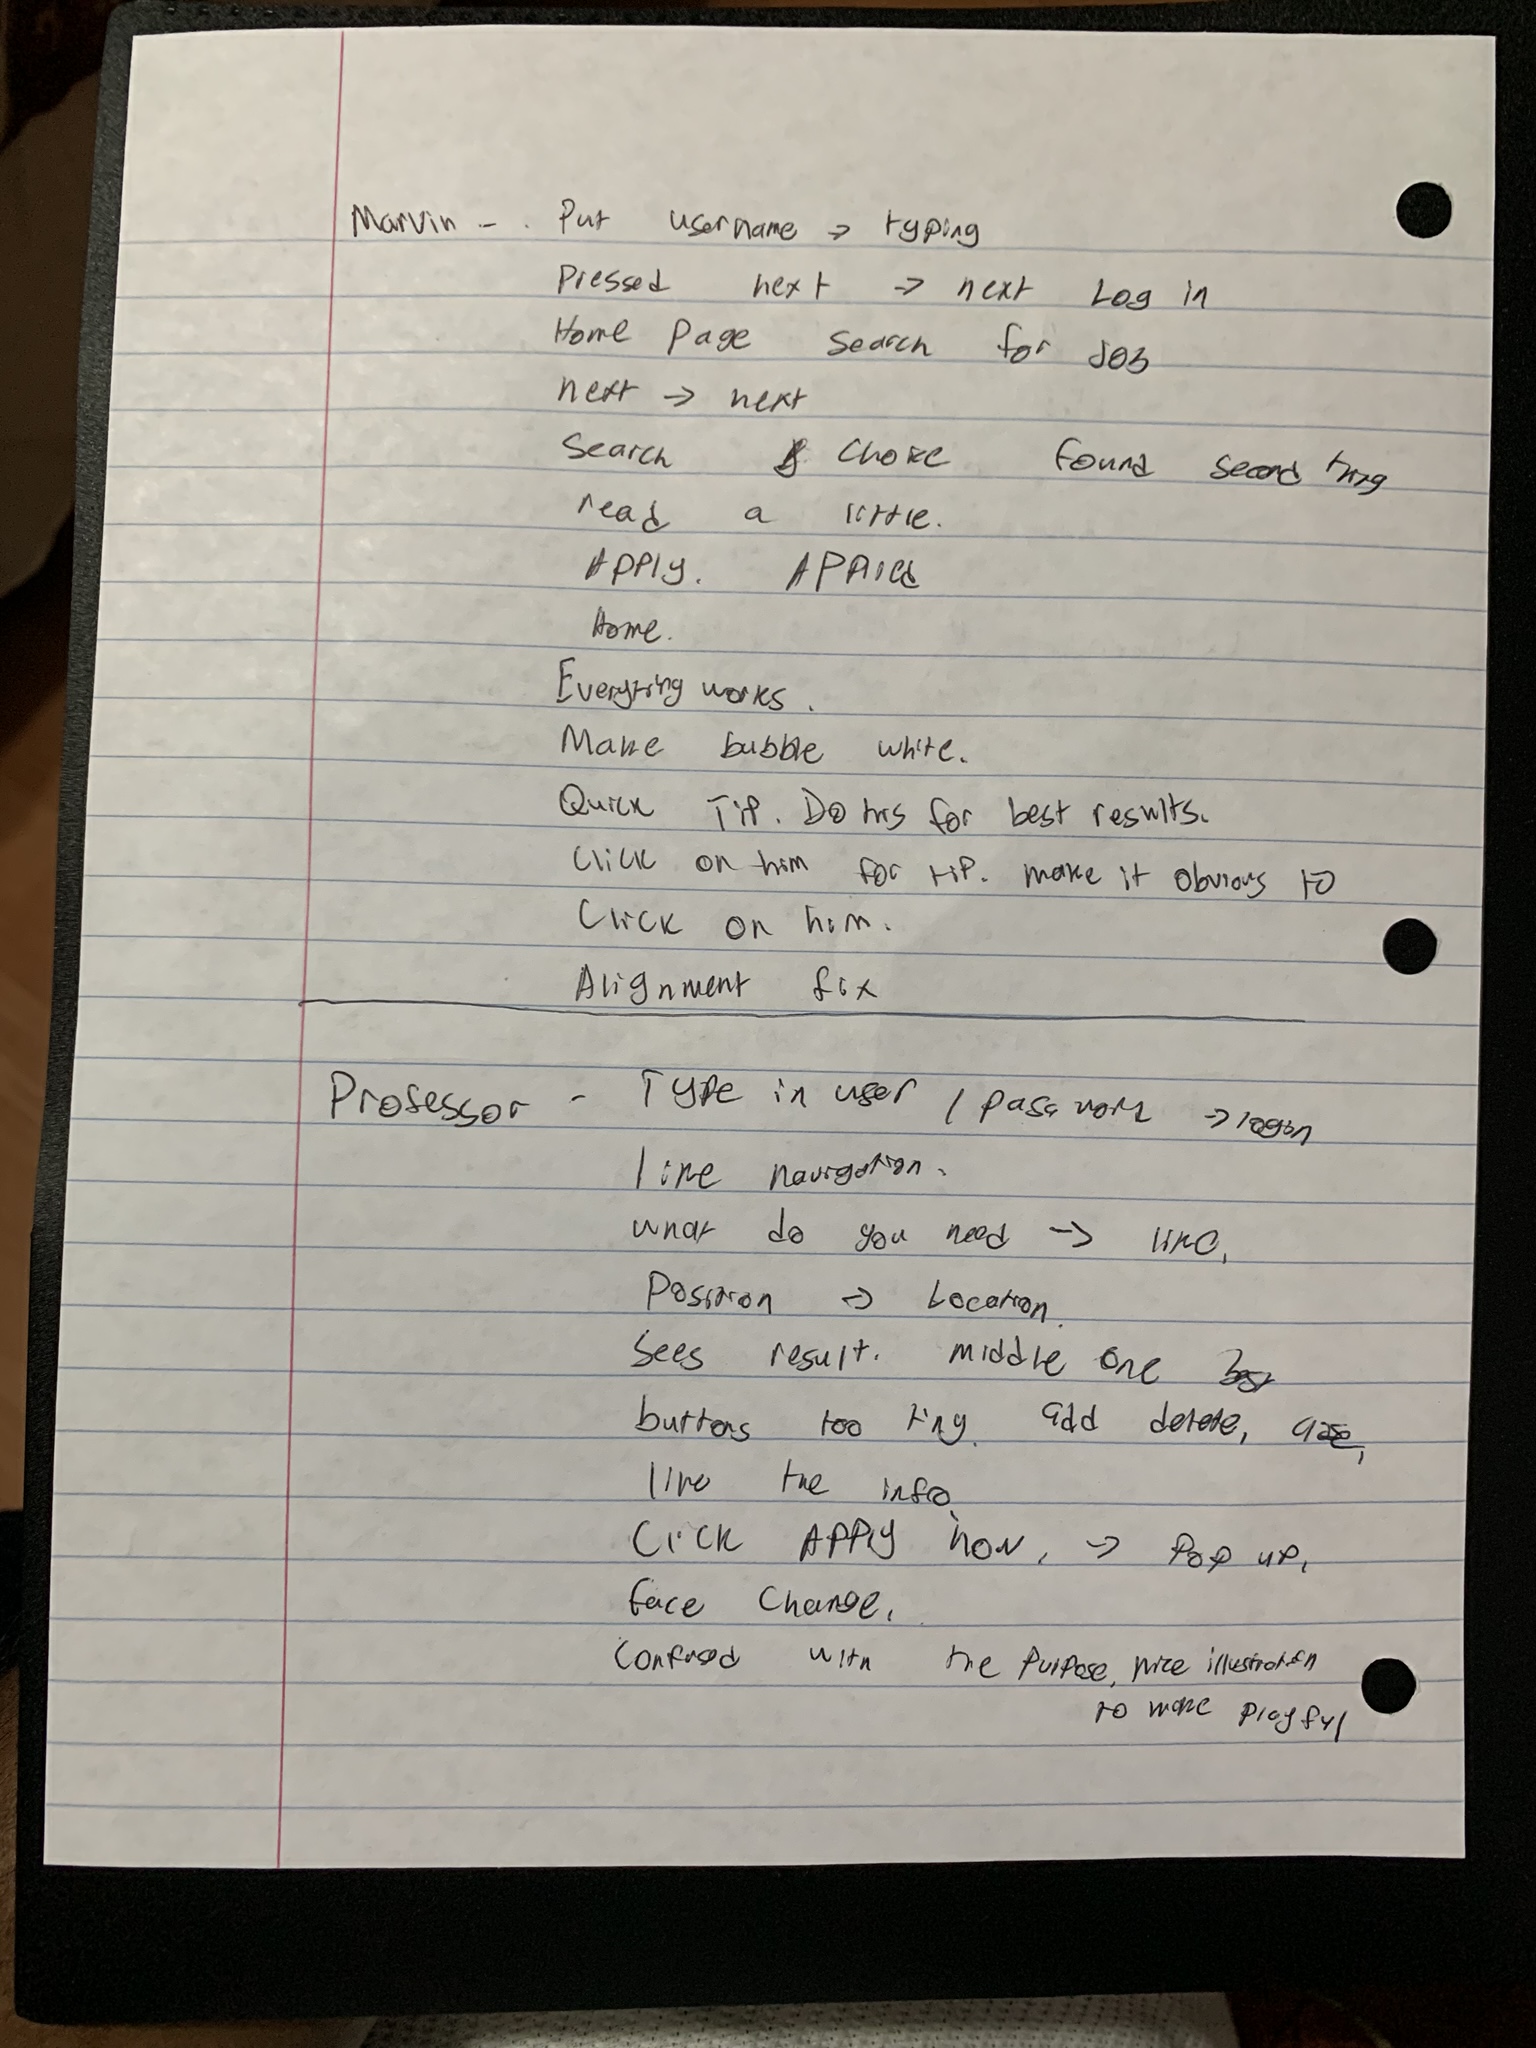 Marvin - . Put username → typing
Pressed next → next Log in
Home Page search for JOB
next → next
Search & choice found second thing
read a little.
APPly. APPlied
Home.
Everything works.
Make bubble white.
Quick Tip. Do this for best results.
Click on him for tip. make it obvious to
Click on him.
Alignment fix
Professor - Type in user / password → login
like navigation.
what do you need → like,
Position → Location.
Sees result. middle one
buttons too tiny. add delete,
like the info.
Click APPly now, → Pop up,
face change,
confused with the purpose, nice illustration
to make playful